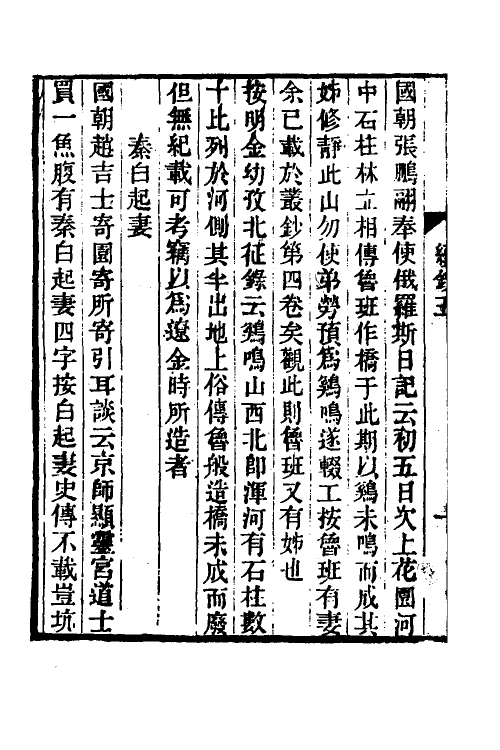 國朝張鵬翮奉使俄羅斯日記云初五日次上花園河
中石柱林立相傳魯班作橋于此期以鷄未鳴而成其
姊修靜此山勿使弟勞預爲鷄鳴遂輟工按魯班有妻
余已載於叢鈔第四卷矣觀此則魯班又有姊也
按明金幼孜北征錄云鷄鳴山西北即渾河有石柱數
十比列於河側其半出地上俗傳魯般造橋未成而廢
但無紀載可考竊以爲遼金時所造者
秦白起妻
國朝趙吉士寄園寄所寄引耳談云京師顯靈宮道士
買一魚腹有秦白起妻四字按白起妻史傳不載豈坑